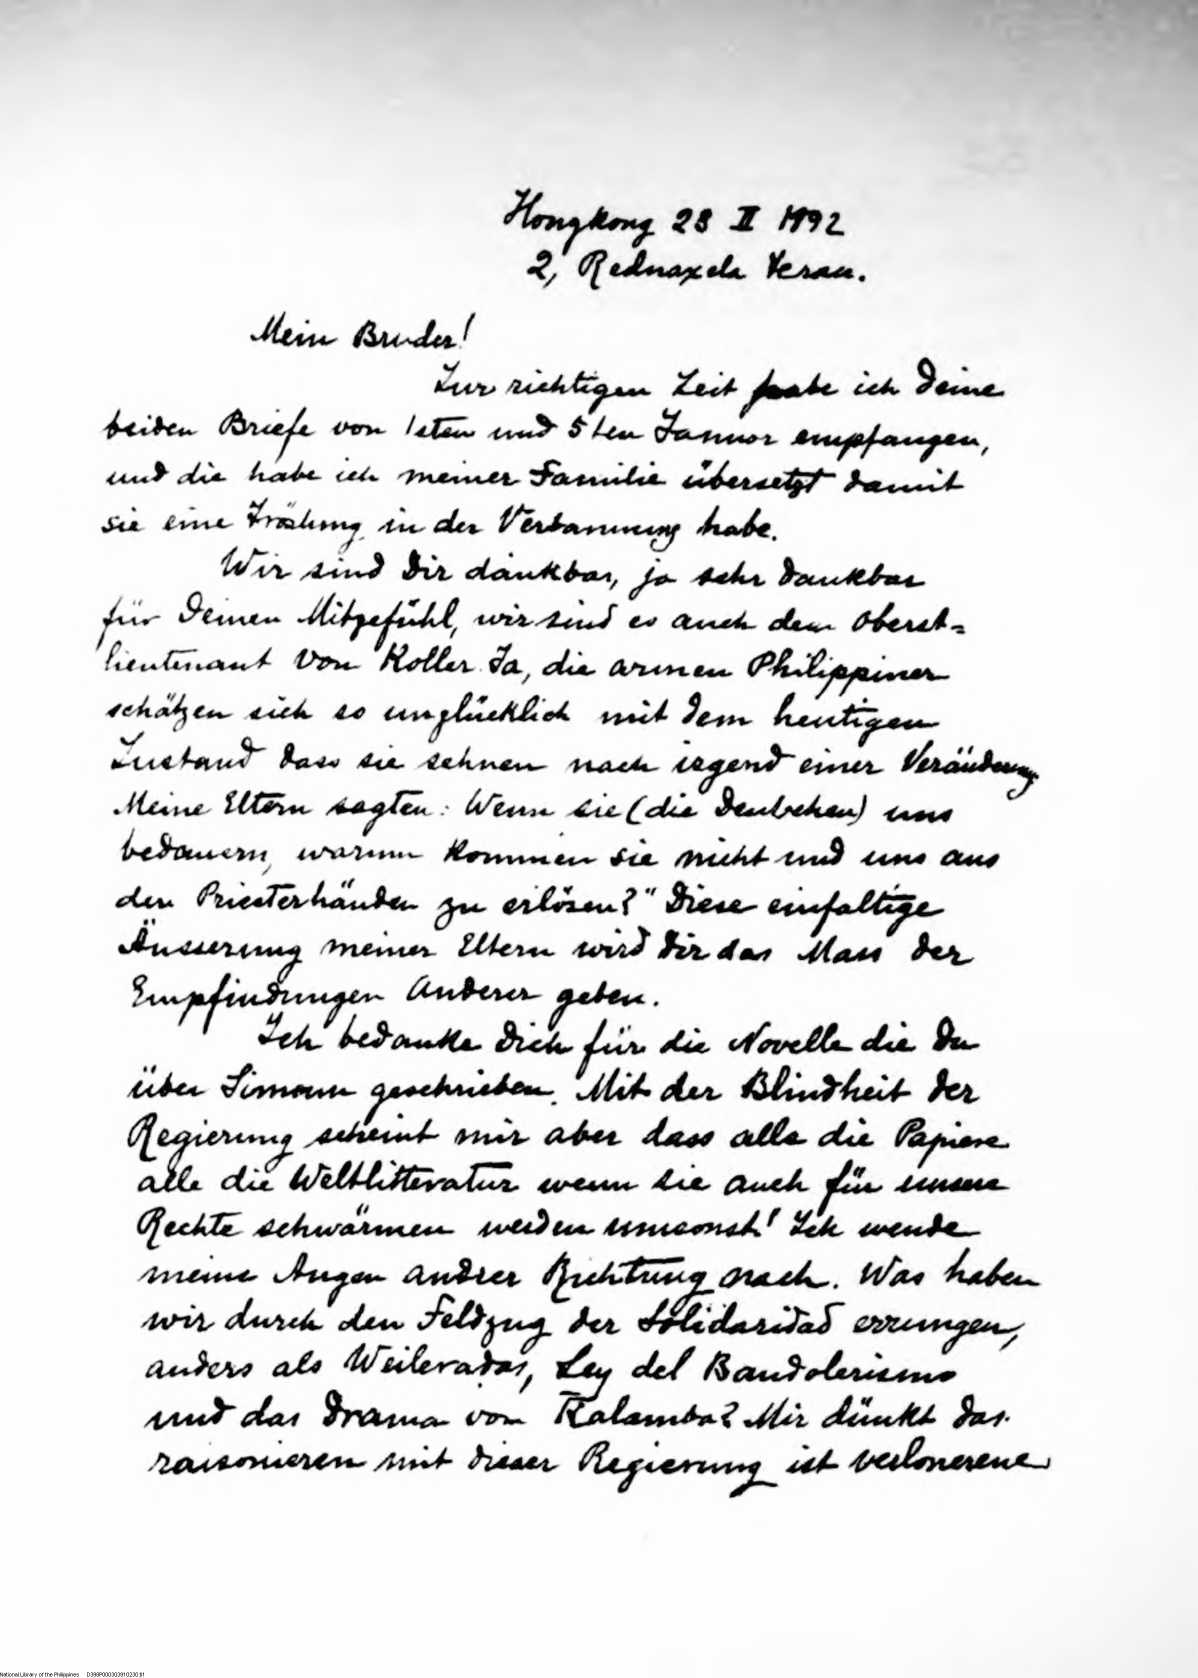 Hongkong 23 II 1892
2, Rednaxela Terau.
Mein Bruder!
Zur richtigen Zeit habe ich Deine
beiden Briefe von 1sten und 5ten Januar empfangen,
und die habe ich meiner Familie übersetzt damit
sie eine Tröstung in der Verbannung habe.
Wir sind Dir dankbar, ja sehr dankbar
für Deinen Mitgefühl, wir sind es auch dem Oberst-
lieutenant von Koller. Ja, die armen Philippiner
schätzen sich so unglücklich mit dem heutigen
Zustand dass sie sehnen nach irgend einer Veränderung.
Meine Eltern sagten: Wenn sie (die Deutschen) uns
bedauern, warum kommen sie nicht und uns aus
den Priesterhänden zu erlösen?" Diese einfaltige
Äusserung meiner Eltern wird Dir das Mass der
Empfindungen Anderer geben.
Ich bedanke Dich für die Novelle die Du
über Simoun geschrieben. Mit der Blindheit der
Regierung scheint mir aber dass alle die Papiere
alle die Weltlitteratur wenn sie auch für unsere
Rechte schwärmen werden umsonst! Ich wende
meine Augen andrer Richtung nach. Was haben
wir durch den Feldzug der Solidaridad errungen,
anders als Weileradas, Ley del Bandolerismo
und das Drama von Kalamba? Mir dünkt das
raisonieren mit dieser Regierung ist
National Library of the Philippines